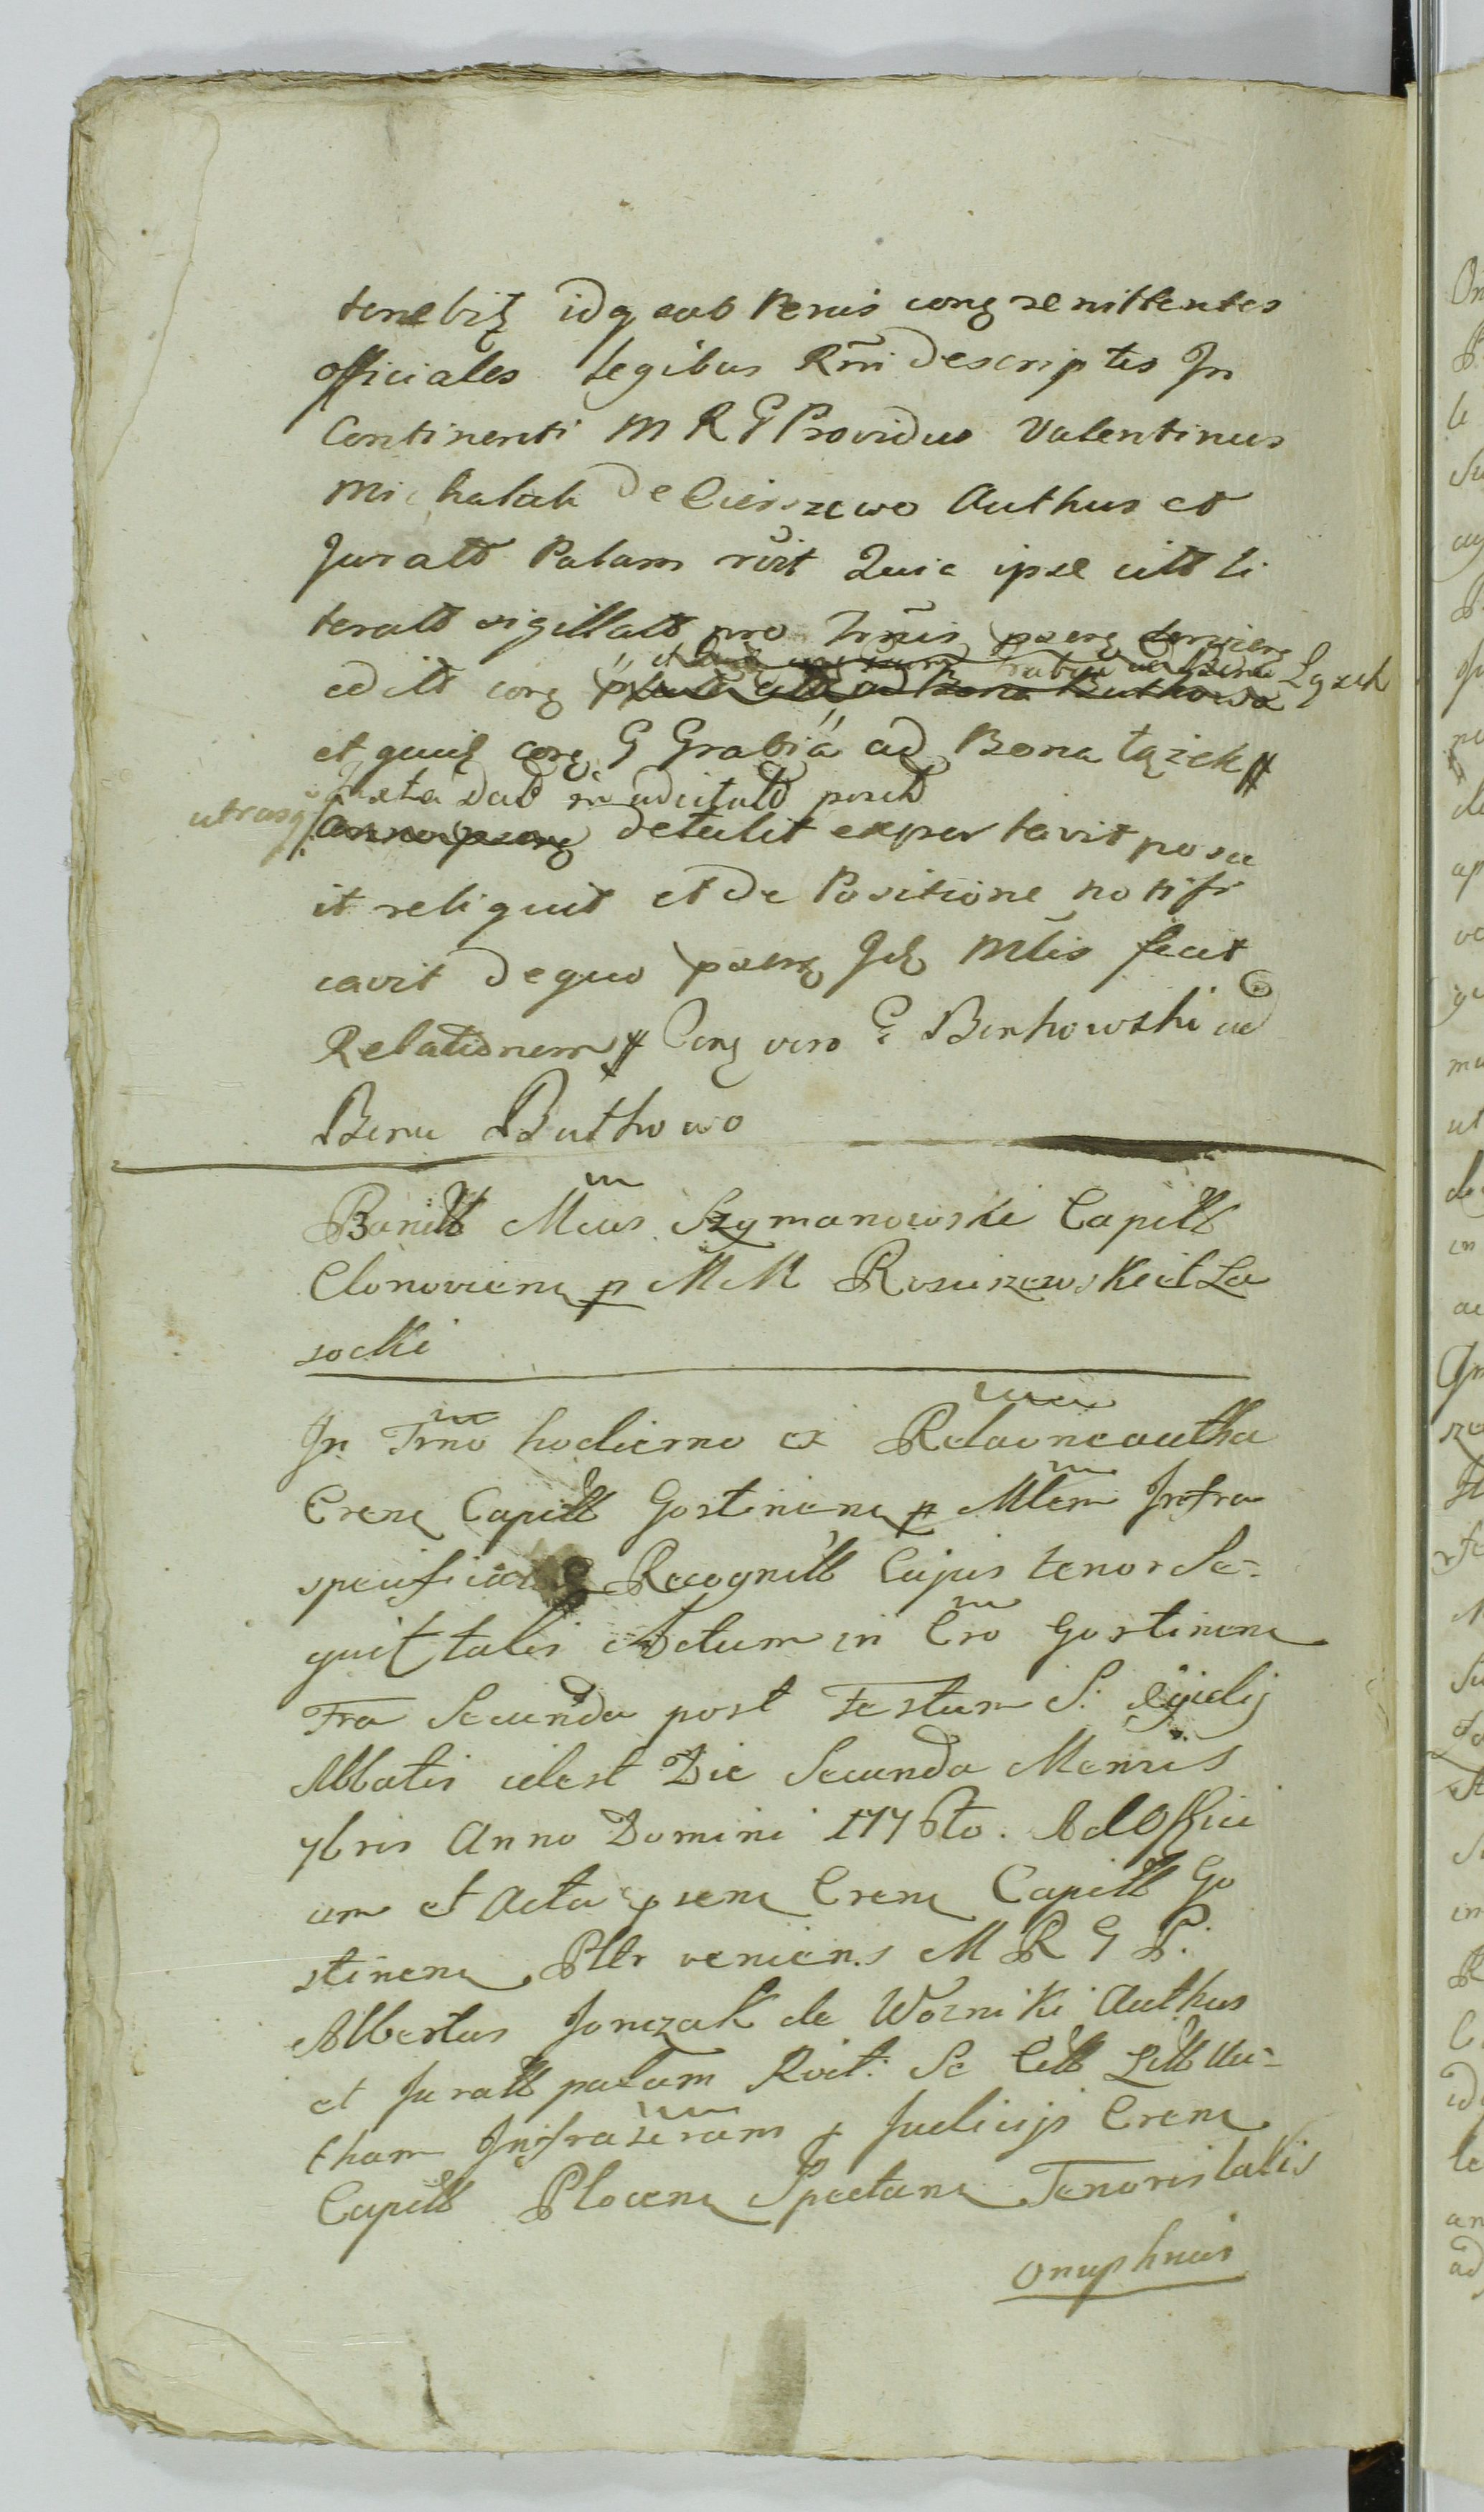 tenebit idq sub Penis conq renittentes
officiales Legibus Rñi descriptis In
Continenti M R G Providus Valentinus
Michalak de Cieszewo Authus et
Juratt Palam rčit Quia ipse citt li
teratt sigillatt pro Trñis
editt corq Lączk
et quidq corq G Grabia ad Bona Łążek #
Juxta
utrasq detulit exportavit posu
it reliquit et de Positione notifi
cavit de quo pserq Jdq Mtis fecit
Relationem # Conq vero G Bonkowski ad
Bona Buthowo
Banitt Mcus Szymanowski Capitt
Clonoviens p M M Rosciszewski et La
socki
In Trno hodierno ex Relaone autha
Crens Capitt Gostinens p Mtem Infra
specificat Recognitt Cujus tenor Se=
quit talis Actum in Cro Gostinens
Fra Secunda post Festum S. Egidij
Abbatis idest Die Secunda Mensis
7bris Anno Domini 1776to. Ad Offici
um et Acta psens Crens Capitt Go
stinens Pltr veniens M R G P.
Albertus Jonczak de Wozniki Authus
et Juratt palam Rčit: Se Citt Litt Au=
tham Infrascram p Judicijs Crens
Capitt Plocens Spectans Tenoris talis
Onuphrius